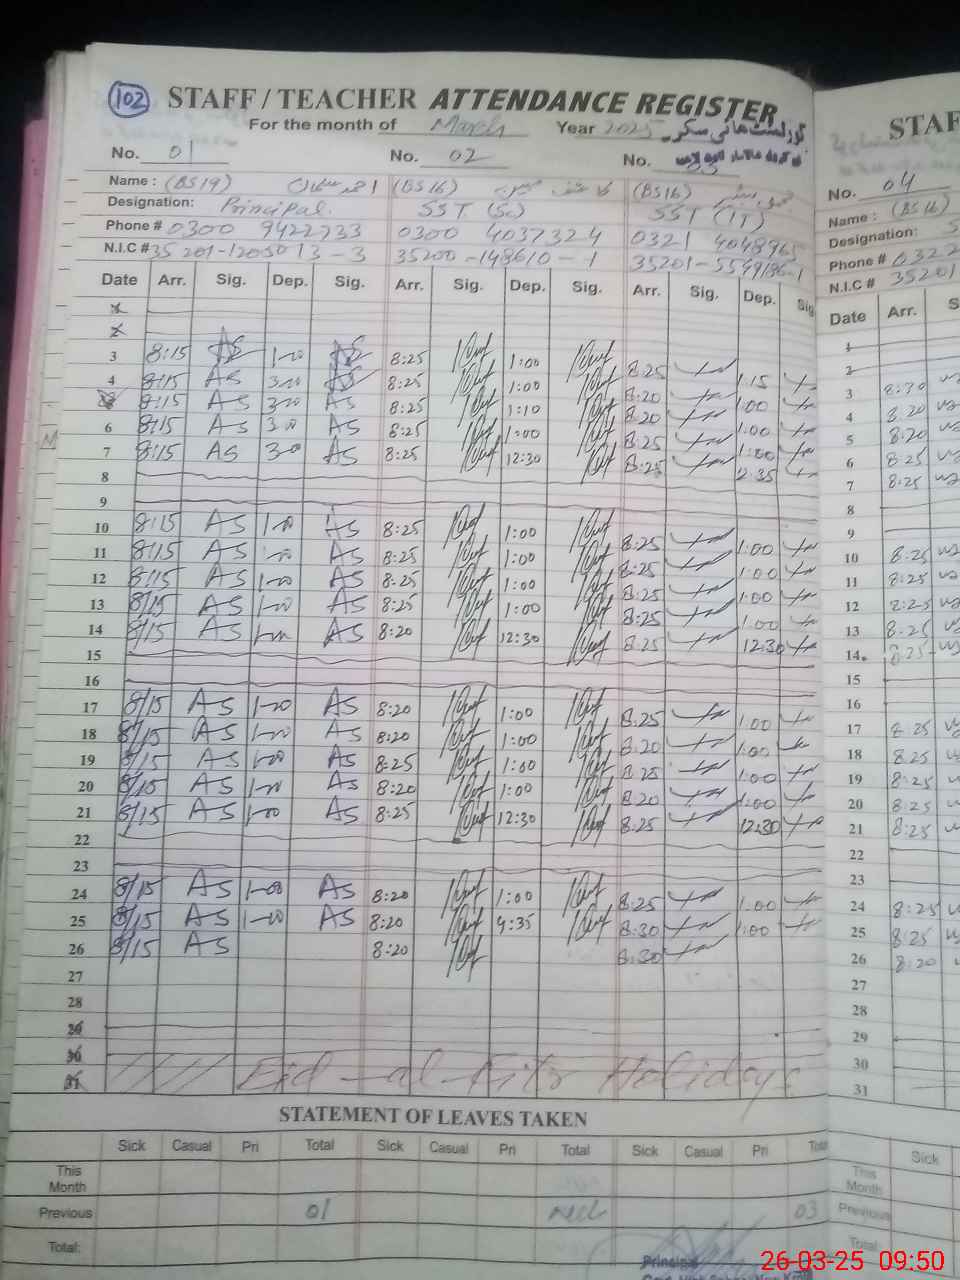 102 STAFF / TEACHER ATTENDANCE REGISTER
For the month of March Year 2025
No. 01 No. 02 No. 03
Name : (BS19) احمد (BS16) (BS16)
Designation: Principal. SST (Sc) SST (IT)
Phone # 0300 9422733 0300 4037324 0321
N.I.C # 35200-148610-1
Date Arr. Sig. Dep. Sig. Arr. Sig. Dep. Sig. Arr. Sig. Dep. Sig
1
2
3 8:15 AS 1-00 AS 8:25 1:00 8:25 1:15
4 8:15 AS 3-00 AS 8:25 1:00 8:20 1:00
5 8:15 AS 3-00 AS 8:25 1:10 8:20 1:00
6 8:15 AS 3-00 AS 8:25 1:00 8:25 1:00
7 8:15 AS 3-00 AS 8:25 12:30 8:25
8
9
10 8:15 AS 1-00 AS 8:25 1:00 8:25 1:00
11 8:15 AS 1-00 AS 8:25 1:00 8:25 1:00
12 8:15 AS 1-00 AS 8:25 1:00 8:25 1:00
13 8:15 AS 1-00 AS 8:25 1:00 8:25 1:00
14 8:15 AS 1-00 AS 8:20 12:30 8:25 12:30
15
16
17 8:15 AS 1-00 AS 8:20 1:00 8:25 1:00
18 8:15 AS 1-00 AS 8:20 1:00 8:20 1:00
19 8:15 AS 1-00 AS 8:25 1:00 8:25 1:00
20 8:15 AS 1-00 AS 8:20 1:00 8:20 1:00
21 8:15 AS 1-00 AS 8:25 12:30 8:25 12:30
22
23
24 8:15 AS 1-00 AS 8:20 1:00 8:25 1:00
25 8:15 AS 1-00 AS 8:20 4:35 8:30 1:00
26 8:15 AS 8:20 8:30
27
28
29
30
31 Eid-al-Fitr Holidays
STATEMENT OF LEAVES TAKEN
Sick Casual Pri Total Sick Casual Pri Total Sick Casual Pri Total
This Month
Previous 01 03
Total:
Principal
STAF
No. 04
Name : (BS16)
Designation:
Phone # 0322
N.I.C # 35201
Date Arr. S
1
2
3 8:30
4 8:20
5 8:20
6 8:25
7 8:25
8
9
10 8:25
11 8:25
12 8:25
13 8:25
14 8:25
15
16
17 8:25
18 8:25
19 8:25
20 8:25
21 8:25
22
23
24 8:25
25 8:25
26 8:20
27
28
29
30
31
Sick
This Month
Previous
Total:
26-03-25 09:50